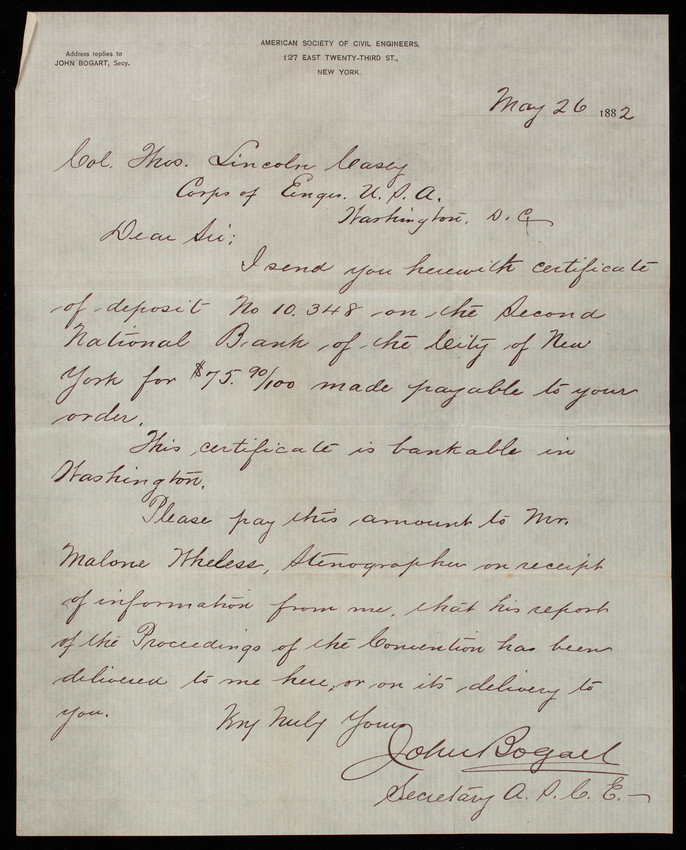 Address replies to
JOHN BOGART, Secy.
AMERICAN SOCIETY OF CIVIL ENGINEERS,
127 EAST TWENTY-THIRD ST.,
NEW YORK.
May 26 1882
Col. Thos. Lincoln Casey
Corps of Engrs. U. S. A.
Washington, D. C.
Dear Sir;
I send you herewith certificate
of deposit No 10,348 on the Second
National Bank of the City of New
York for $75. 90/100 made payable to your
order.
This certificate is bankable in
Washington.
Please pay this amount to Mr.
Malone Wheless, Stenographer on receipt
of information from me, that his report
of the Proceedings of the Convention has been
delivered to me here, or on its delivery to
you.
Very truly Yours
John Bogart
Secretary A. S. C. E.